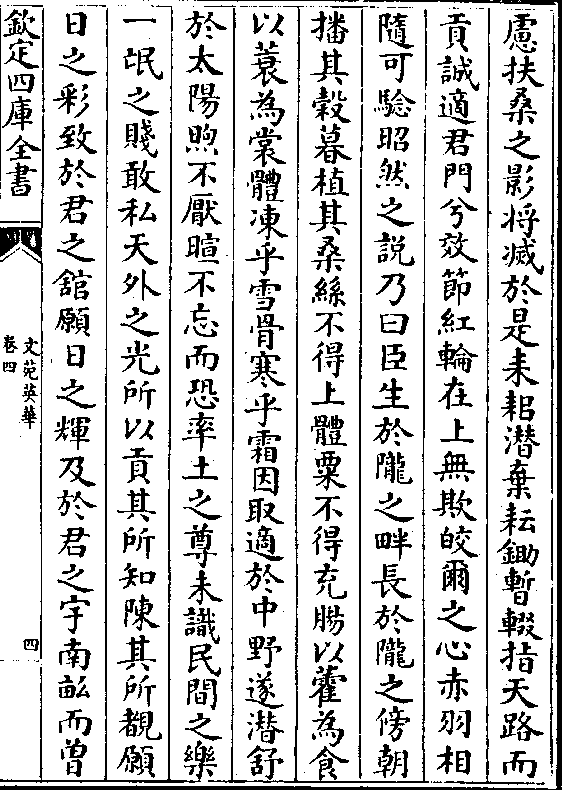 慮扶桑之影将滅於是耒耜潜棄耘鋤暫輟指天路而
貢誠適君門兮效節紅輪在上無欺皎爾之心赤羽相
隨可驗昭然之説乃曰臣生於隴之畔長於隴之傍朝
播其穀暮植其桑絲不得上體粟不得充腸以藿為食
以蓑為裳體凍乎雪骨寒乎霜因取適於中野遂潜舒
於太陽煦不厭暄不忘而恐率土之尊未識民間之樂
一氓之賤敢私天外之光所以貢其所知陳其所覩願
日之彩致於君之舘願日之輝及於君之宇南畝而曽
欽定四庫全書
文苑英華
卷四
四